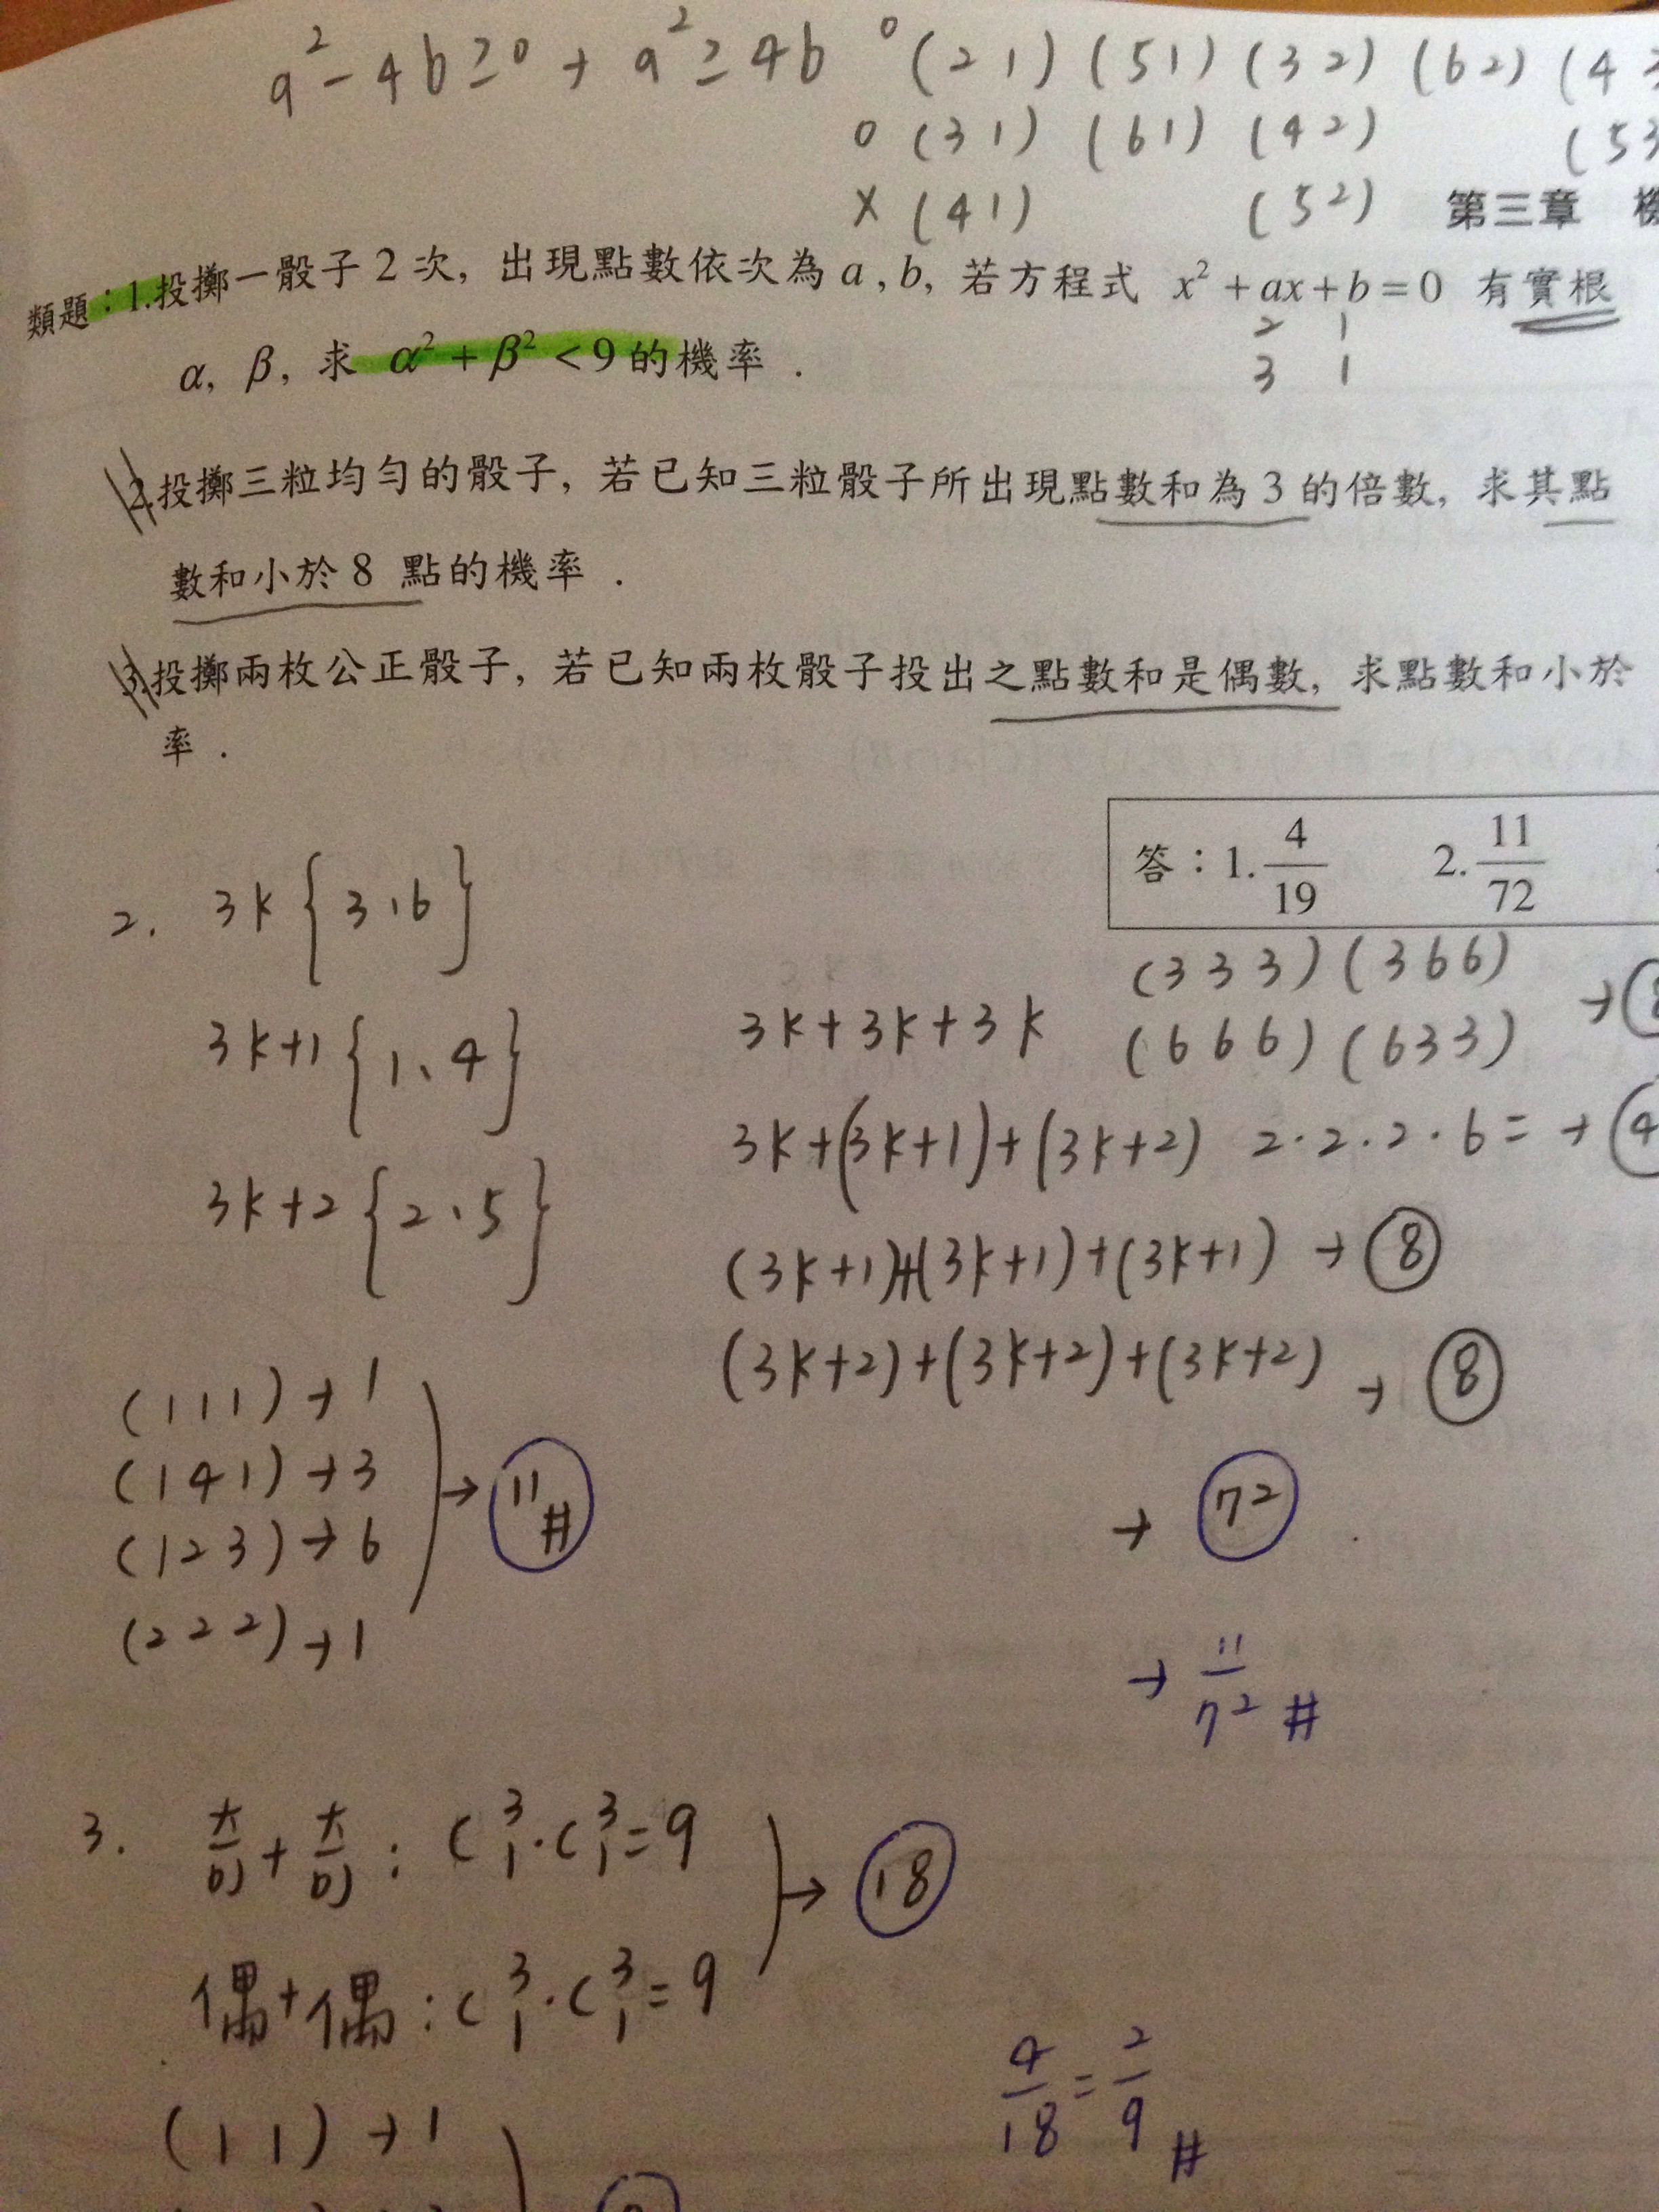 a²-4b≥0 → a²≥4b ○(2 1) (5 1) (3 2) (6 2) (4
○ (3 1) (6 1) (4 2) (5 3
× (4 1) (5 2) 第三章 機
類題：1.投擲一骰子 2 次, 出現點數依次為 a , b, 若方程式 x² + ax + b = 0 有實根
2 1
α, β, 求 α² + β² < 9 的機率 .
3 1
2.投擲三粒均勻的骰子, 若已知三粒骰子所出現點數和為 3 的倍數, 求其點
數和小於 8 點的機率 .
3.投擲兩枚公正骰子, 若已知兩枚骰子投出之點數和是偶數, 求點數和小於
率 .
答：1. 4/19 2. 11/72
2. 3k {3、6}
(3 3 3) (3 6 6)
3k+3k+3k (6 6 6) (6 3 3) →
3k+1 {1、4}
3k+(3k+1)+(3k+2) 2·2·2·6= → 4
3k+2 {2、5}
(3k+1)+(3k+1)+(3k+1) → 8
(3k+2)+(3k+2)+(3k+2) → 8
(1 1 1) → 1
(1 4 1) → 3
(1 2 3) → 6
(2 2 2) → 1
→ 11 #
→ 72
→ 11/72 #
3. 奇+奇：C³₁·C³₁=9
→ 18
偶+偶：C³₁·C³₁=9
4/18 = 2/9 #
(1 1) → 1